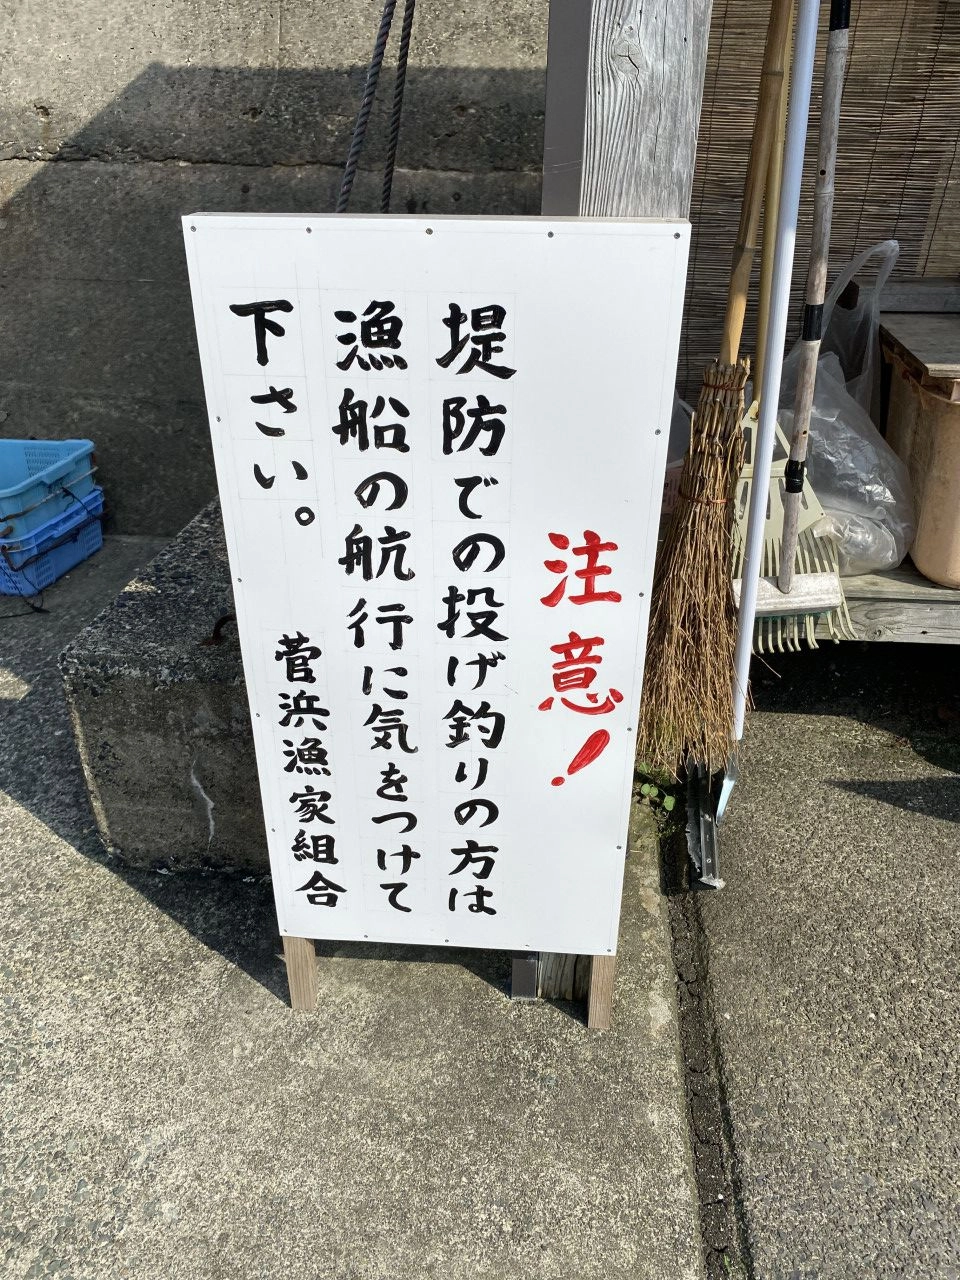 注意!
堤防での投げ釣りの方は
漁船の航行に気をつけて
下さい。
菅浜漁家組合